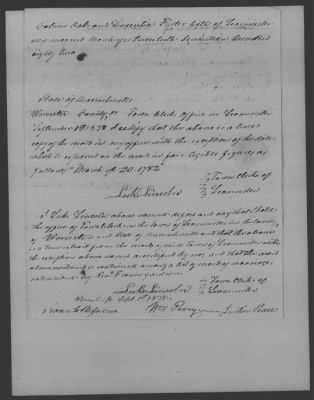 Calvin Hale and Fuller both of Leominster
was married March ye twentieth Seventeen Hundred
eighty two
State of Massachusetts
Worcester County Town Clerks Office in Leominster
September 1838 I certify that the above is a true
copy of the record in my office with the exception of the date
which is expressed on the record in fair legible figures as
follows March ye 20. 1782"
Luke Lincoln Town Clerk of
Leominster
I Luke Lincoln above named depose and say that I hold
the office of Town Clerk in the town of Leominster in the County
of Worcester and State of Massachusetts and that the above
is a true extract from the records of said Town of Leominster with
the exception above named as certified by me and that the record
above mentioned is contained among a list of records of marriage,
by Revd Francis Gardner
Luke Lincoln Town Clerk of
Leominster
Worcester ss Sept 1838
Sworn to before Wm Perry Justice Peace